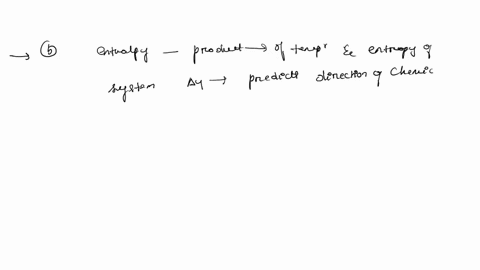 → ⑤ enthalpy — product → of tempr & entropy of
system ΔG → predicts direction of Chemic